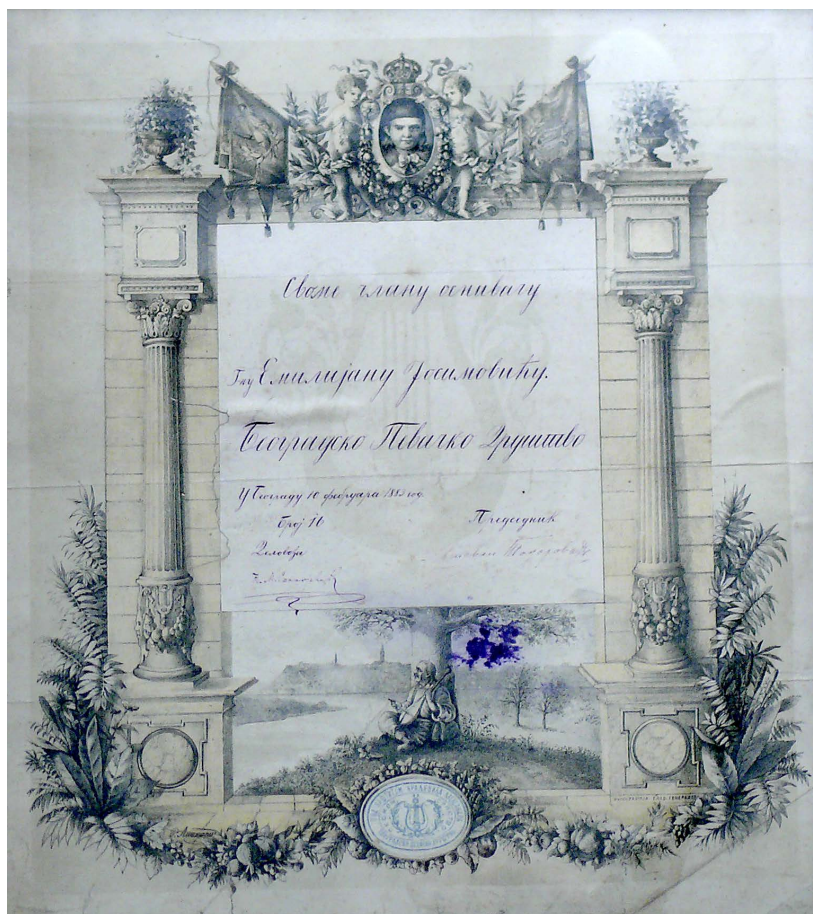 Своме члану оснивачу
Гну Емилијану Јосимовићу.
Београдско Певачко Друштво
У Београду 10 фебруара 1882 год.
Број 16
Председник
Деловођа
Стеван Тодоровић